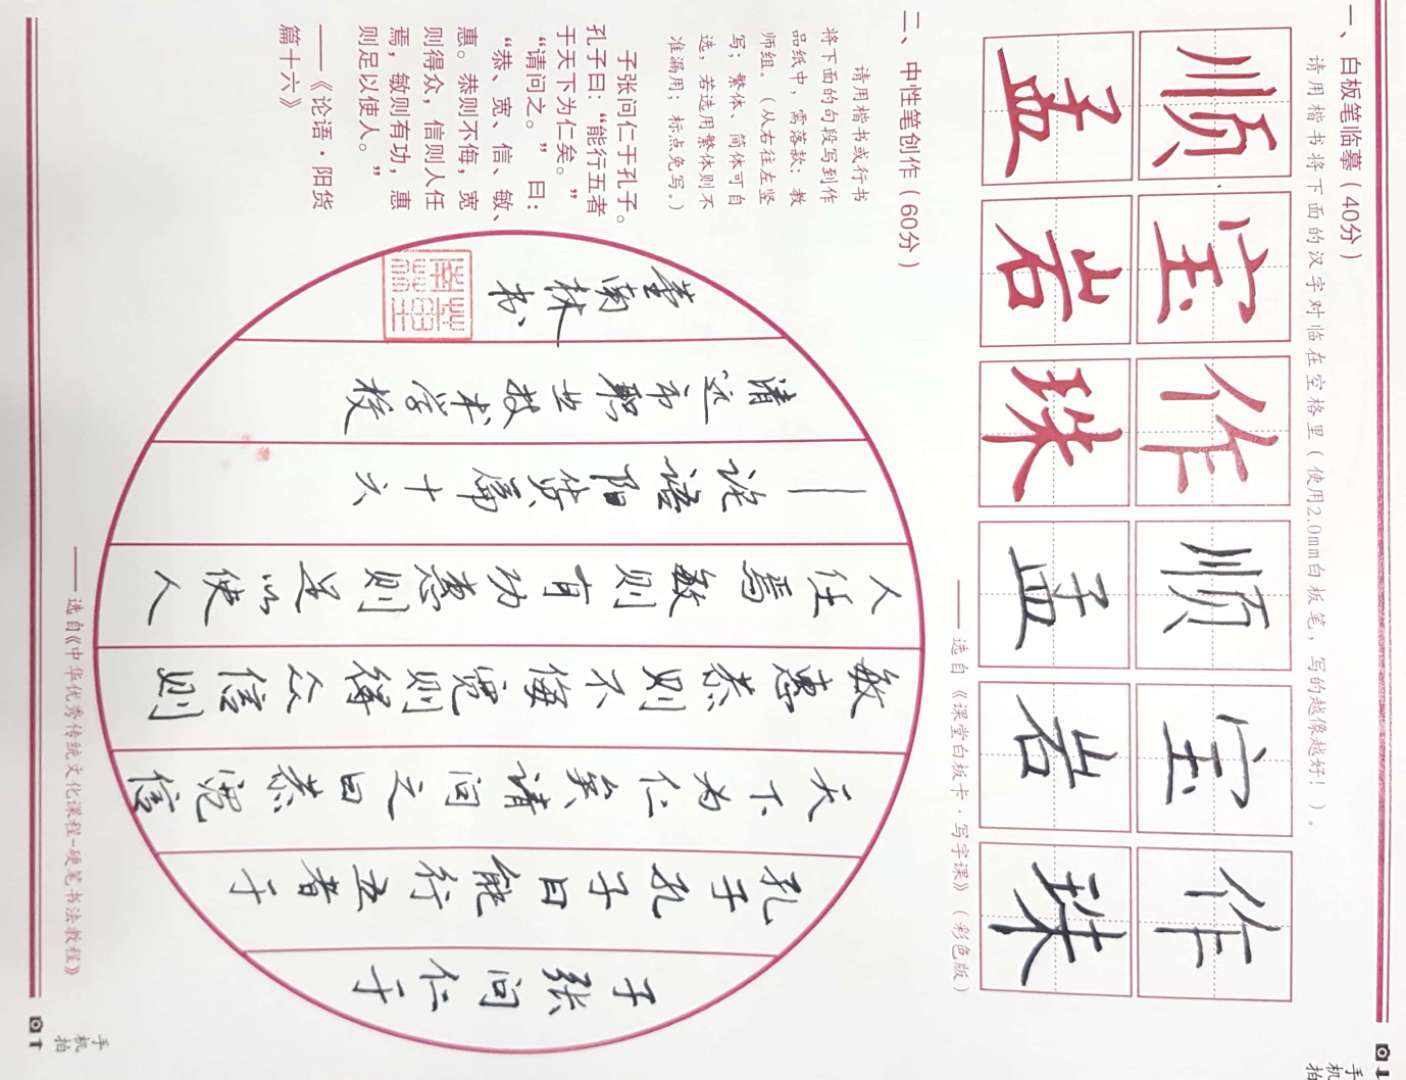 一、白板笔临摹（40分）
请用楷书将下面的汉字对临在空格里（使用2.0mm白板笔，写的越像越好！）。
顺 宝 作 顺 宝 作
孟 岩 珠 孟 岩 珠
——选自《课堂白板卡·写字课》（彩色版）
二、中性笔创作（60分）
请用楷书或行书
将下面的句段写到作
品纸中，需落款；教
师组。（从右往左竖
写；繁体、简体可自
选，若选用繁体则不
准漏用；标点免写。）
子张问仁于孔子。
孔子曰：“能行五者
于天下为仁矣。”
“请问之。”曰：
“恭、宽、信、敏、
惠。恭则不侮，宽
则得众，信则人任
焉，敏则有功，惠
则足以使人。”
——《论语·阳货
篇十六》
子张问仁于
孔子孔子曰能行五者于
天下为仁矣请问之曰恭宽信
敏惠恭则不侮宽则得众信则
人任焉敏则有功惠则足以使人
——论语阳货篇十六
清远市职业技术学校
南林书
——选自《中华优秀传统文化课程-硬笔书法教程》
手机拍
手机拍